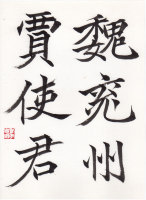 魏兖州
賈使君